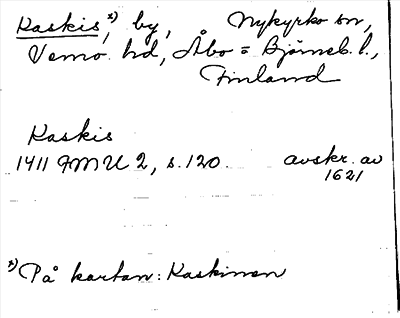 Kaskis*), by, Nykyrko sn,
Vemo hd, Åbo=Björneb. l.,
Finland
Kaskis
1411 FMU 2, s. 120. avskr. av
1621
*) På kartan: Kaskinen